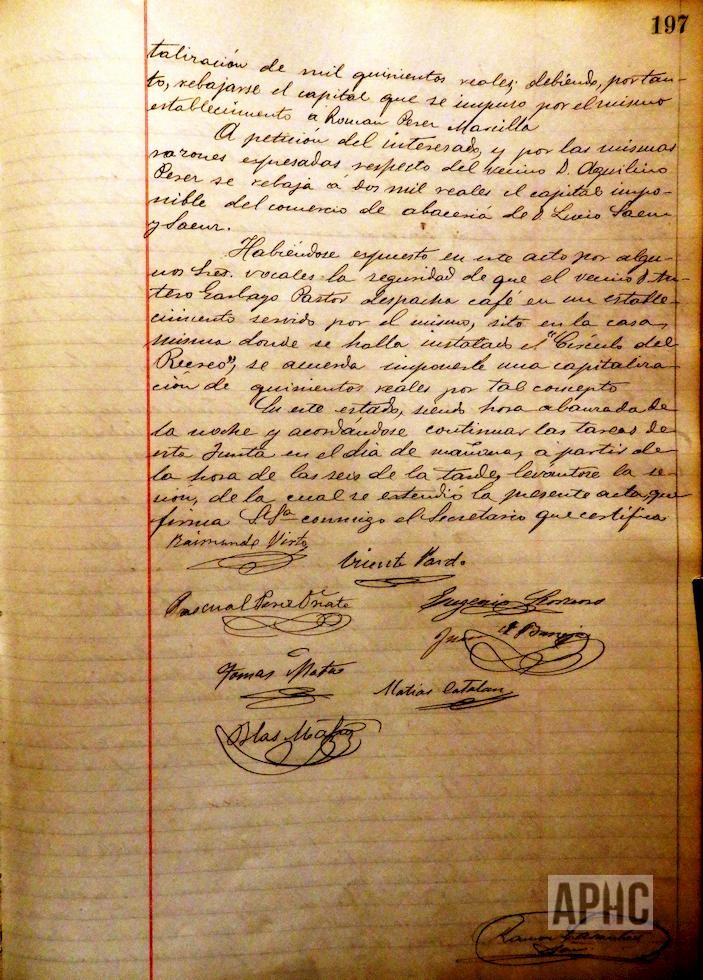 197
talización de mil quinientos reales; debiendo, portan-
to, rebajarse el capital que se impuso por el mismo
establecimiento a Roman Perez Marcilla
A petición del interesado, y por las mismas
razones expresadas respecto del vecino D. Aquilino
Perez se rebaja á dos mil reales el capital impo-
nible del comercio de abacería de D. Lucio Saenz
y Saenz.
Habiéndose expuesto en este acto por algu-
nos Sres. vocales la seguridad de que el vecino D. An-
tero Garbayo Pastor despacha café en un estable-
cimiento servido por el mismo, sito en la casa
misma donde se halla instalado el "Círculo del
Recreo", se acuerda imponerle una capitaliza-
ción de quinientos reales por tal concepto
En este estado, siendo hora abanzada de
la noche y acordándose continuar las tareas de
esta Junta en el día de mañana, a partir de
la hora de las seis de la tarde, levántose la se-
sión, de la cual se extendió la presente acta, que
firma S. Sª conmigo el Secretario que certifica
Raimundo Virto
Vicente Pardo
Pascual Perez Oñate
Eugenio
Tomas Mateo
Matias Catalan
Blas
APHC
Ramon